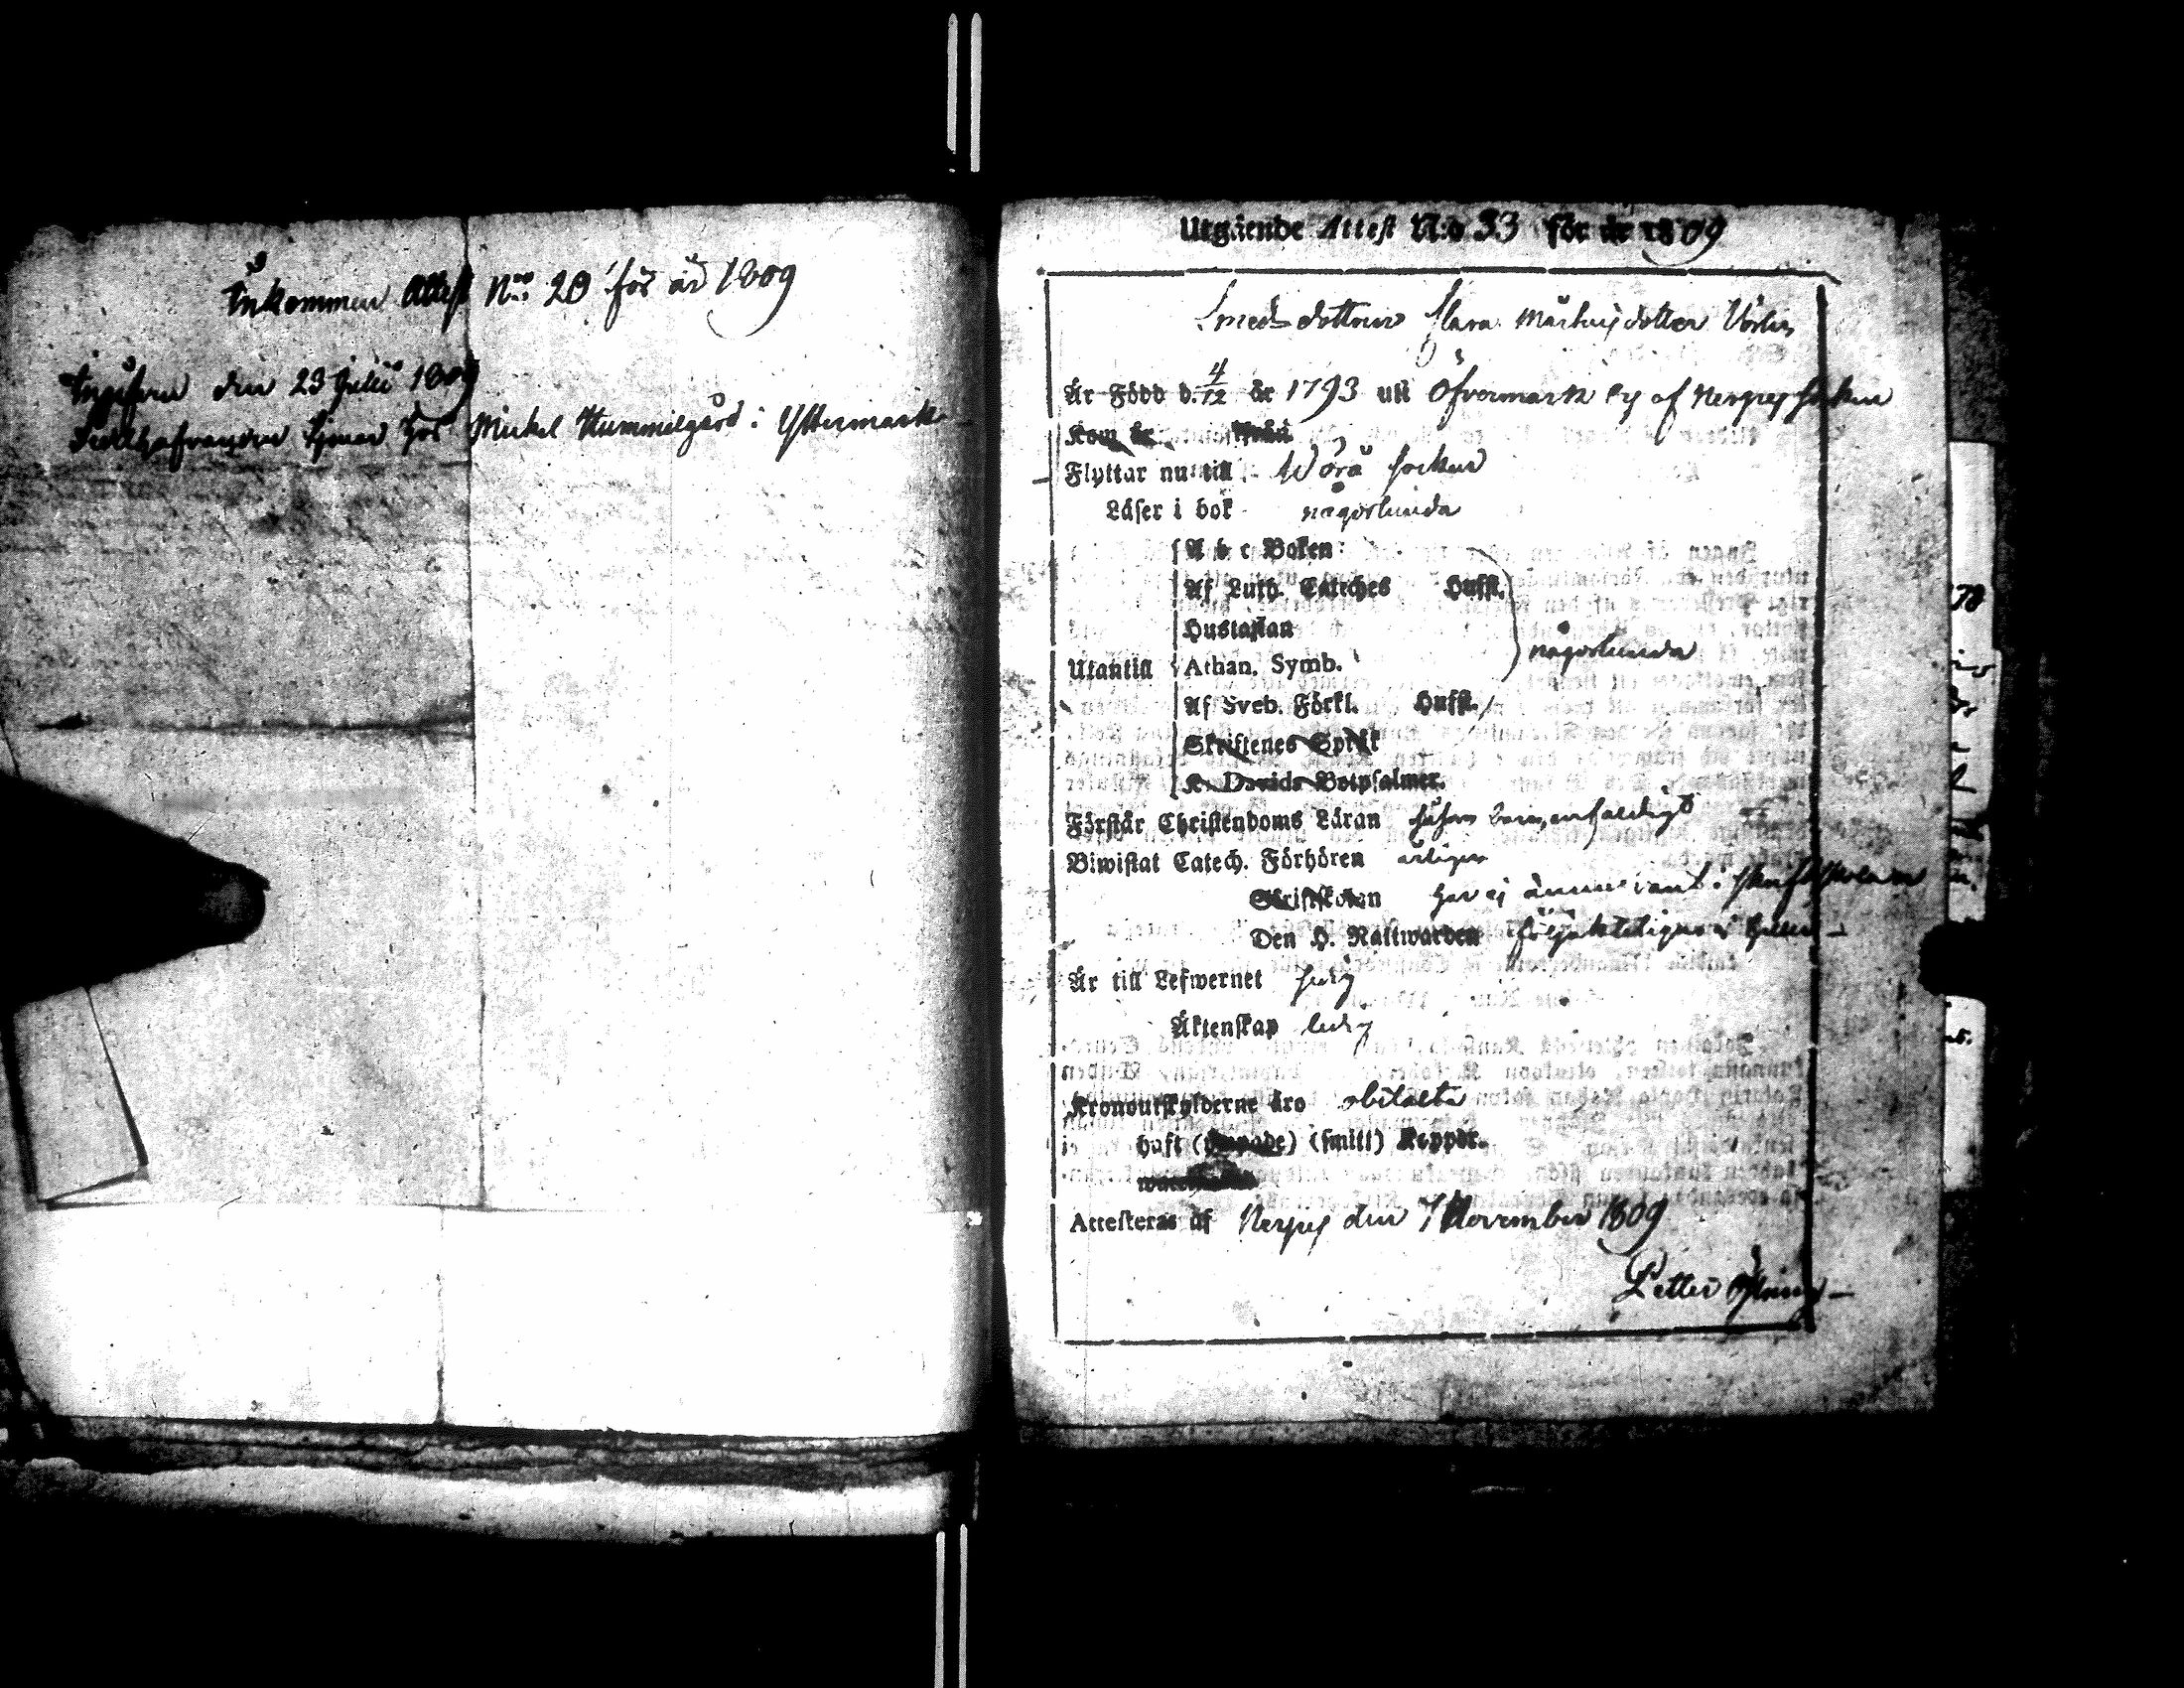 Inkommen Attest N:ro 20 för år 1809
den 23 Julii 1809
tjenar hos Mickel Hummelgård i Yttermark
Utgående Attest N:o 33 för år 1809
Smedsdottren Clara Mårthensdotter
Är Född d. 4/12 år 1793 uti Öfvermark by af Nerpes socken
Kom år ifrån
Flyttar nu till Wörå socken
Läser i bok någorlunda
A b c Boken
Af Luth. Cateches Hufst.
Hustaflan
någorlunda
Utantill Athan. Symb.
Af Sveb. Förkl. Hufst.
Skriftenes Språk
K. Davids Botpsalmer.
Förstår Christendoms Läran såsom barn, enfaldigt
Biwistat Catech. Förhören årligen
Skriftskolan har ej ännu varit i skriftskolan
Den H. Nattwarden följakteligen ej heller
Är till Lefwernet sedig
Äktenskap ledig
Kronoutskylderne äro obetalte
haft ( ) (smitt) Koppor.
Attesteras af Nerpes den 7 November 1809
Petter